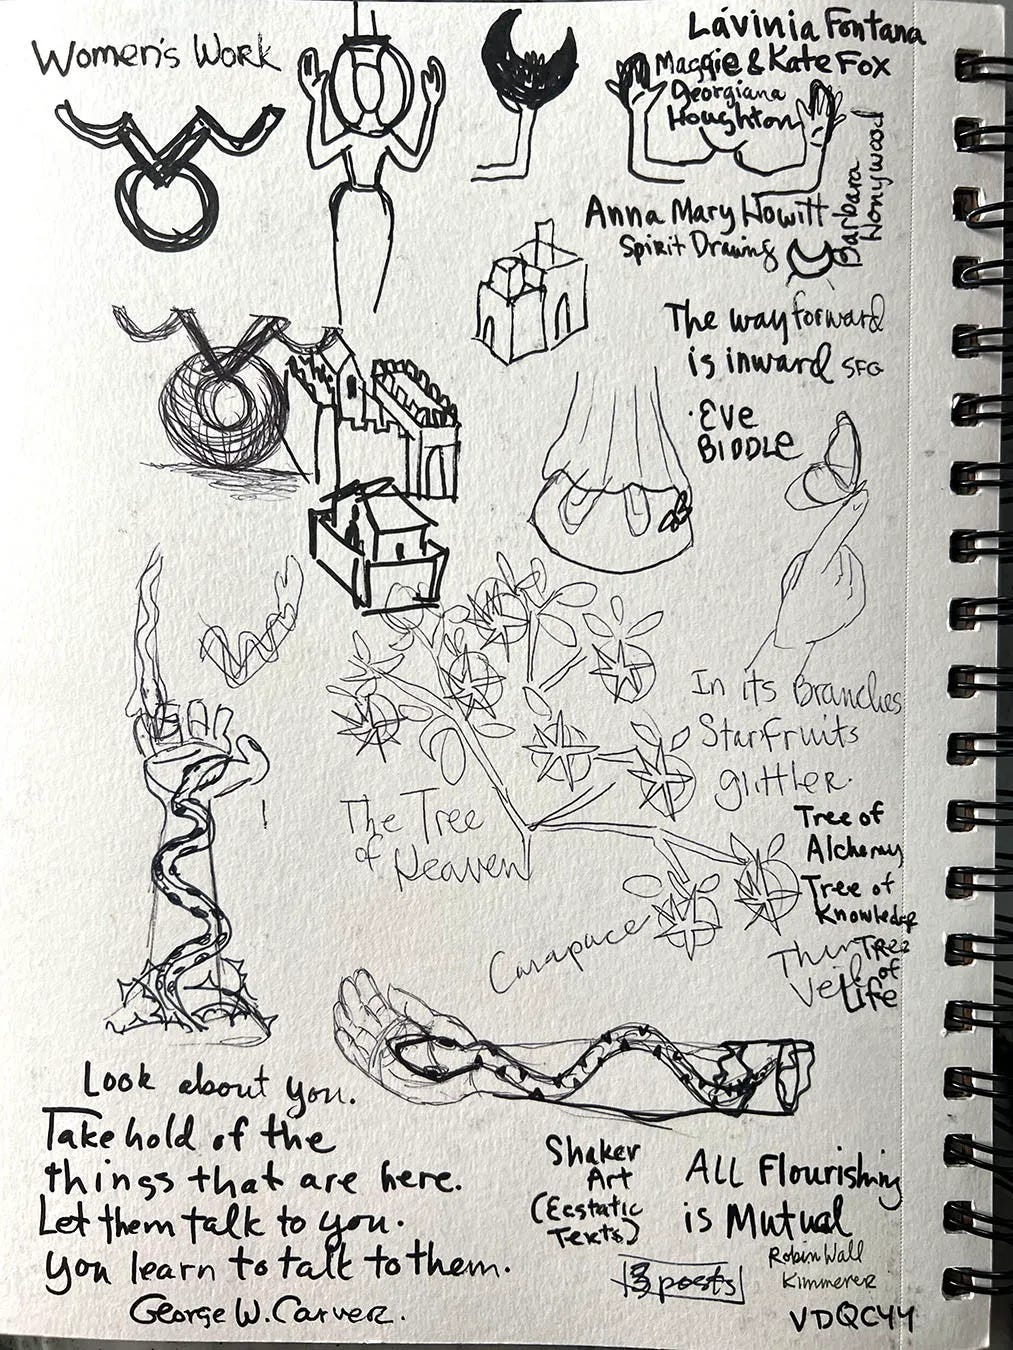 Women's Work
Lávinia Fontana
Maggie & Kate Fox
Georgiana
Houghton
Barbara
Honywood
Anna Mary Howitt
Spirit Drawing
The way forward
is inward SFG
· Eve
BIDDLE
In its Branches
Starfruits
glittler.
The Tree
of Heaven
Tree of
Alchemy
Tree of
Knowledge
Tree
of
Life
Thin
Veil
Carapace
Look about you.
Take hold of the
things that are here.
Let them talk to you.
You learn to talk to them.
George W. Carver.
Shaker
Art
(Ecstatic
Texts)
All Flourishing
is Mutual
Robin Wall
Kimmerer
3 posts